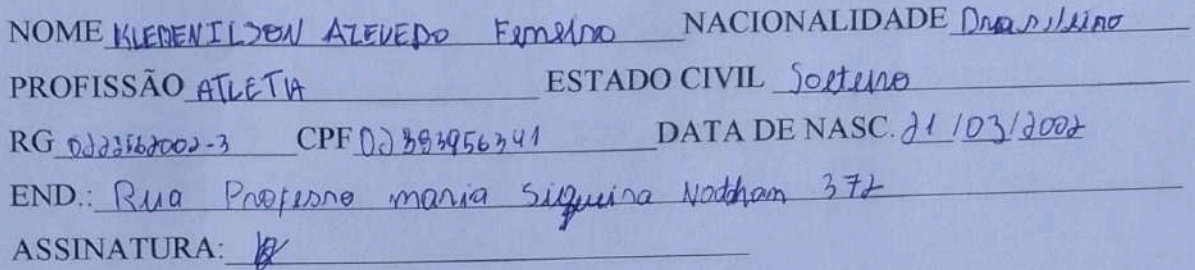 NOME KLEDENILSON AZEVEDO Ferreira NACIONALIDADE Brasileiro
PROFISSÃO ATLETA ESTADO CIVIL Solteiro
RG CPF DATA DE NASC. 21/03/2002
END.: Rua Professora maria Siqueira 372
ASSINATURA: